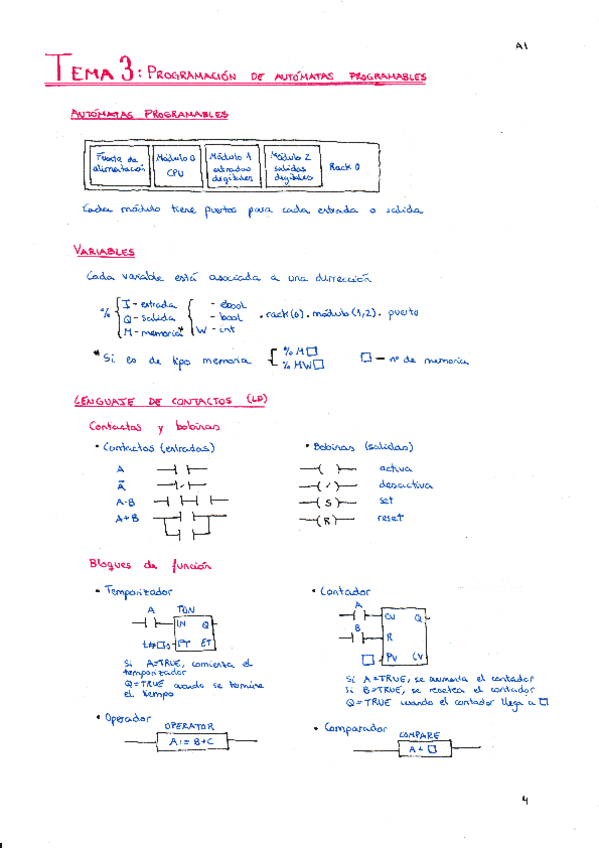 A1
TEMA 3: PROGRAMACIÓN DE AUTÓMATAS PROGRAMABLES
AUTÓMATAS PROGRAMABLES
Fuente de alimentación
Módulo 0 CPU
Módulo 1 entradas digitales
Módulo 2 salidas digitales
Rack 0
Cada módulo tiene puertos para cada entrada o salida
VARIABLES
Cada variable está asociada a una dirrección
% { I - entrada { - ebool
Q - salida - bool . rack(0). módulo(1,2). puerto
M - memoria* W - int
* Si es de tipo memoria { %M□ □ - nº de memoria
%MW□
LENGUAJE DE CONTACTOS (LD)
Contactos y bobinas
• Contactos (entradas)
A
Ā
A·B
A+B
• Bobinas (salidas)
( ) activa
( / ) desactiva
( S ) set
( R ) reset
Bloques de función
• Temporizador
A TON
IN Q
t#□s PT ET
Si A=TRUE, comienza el
temporizador
Q=TRUE cuando se termine
el tiempo
• Contador
A
CU Q
B
R
□ PV CV
Si A=TRUE, se aumenta el contador
Si B=TRUE, se resetea el contador
Q=TRUE cuando el contador llega a □
• Operador
OPERATOR
A:=B+C
• Comparador
COMPARE
4